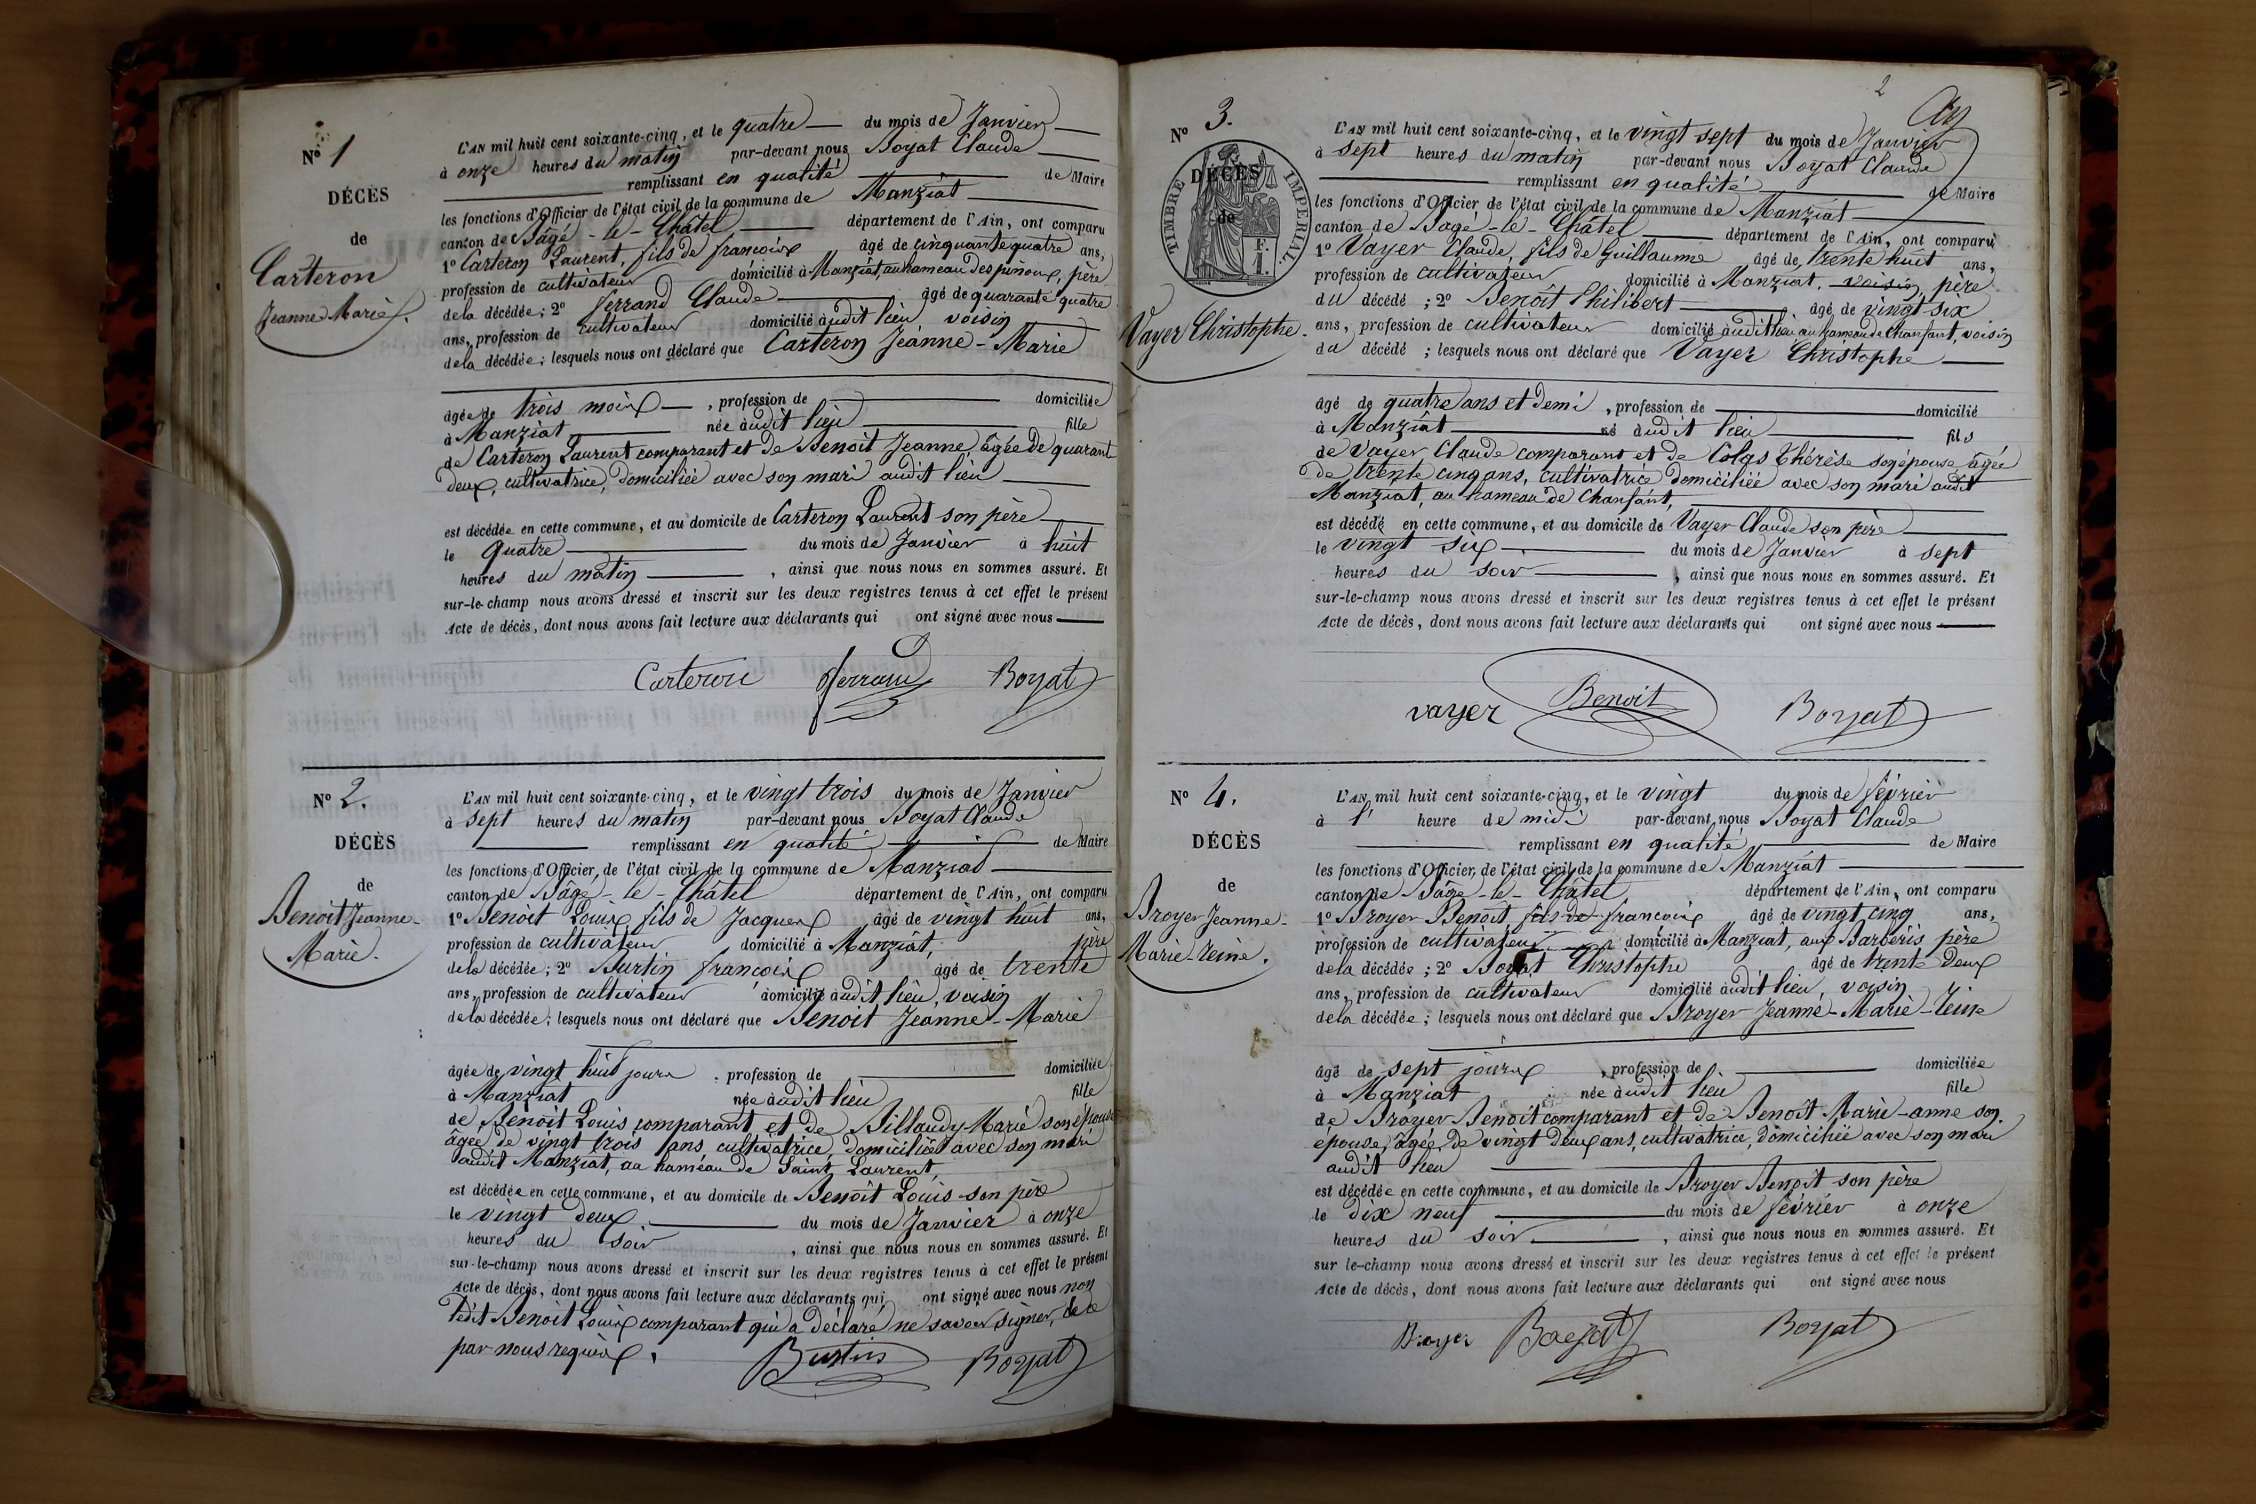 Nº 1
DÉCÈS
de
Carteron
Jeanne Marie.
L'AN mil huit cent soixante-cinq, et le quatre du mois de Janvier
à onze heures du matin par-devant nous Boyat Claude
remplissant en qualité de Maire
les fonctions d'Officier de l'état civil de la commune de Manziat
canton de Bâgé-le-Châtel département de l'Ain, ont comparu
1º Carteron Laurent, fils de françois âgé de cinquante quatre ans,
profession de cultivateur domicilié à Manziat, au hameau des pinoux, père
de la décédée; 2º ferrand Claude âgé de quarante quatre
ans, profession de cultivateur domicilié audit lieu voisin
de la décédée; lesquels nous ont déclaré que Carteron Jeanne-Marie
âgée de trois mois, profession de domiciliée
à Manziat née audit lieu fille
de Carteron Laurent comparant et de Benoit Jeanne, âgée de quarant
deux, cultivatrice, domiciliée avec son mari audit lieu
est décédée en cette commune, et au domicile de Carteron Laurent son père
le quatre du mois de Janvier à huit
heures du matin, ainsi que nous nous en sommes assuré. Et
sur-le-champ nous avons dressé et inscrit sur les deux registres tenus à cet effet le présent
Acte de décès, dont nous avons fait lecture aux déclarants qui ont signé avec nous
Carteron ferrand Boyat
Nº 2.
DÉCÈS
de
Benoit Jeanne-
Marie.
L'AN mil huit cent soixante-cinq, et le vingt trois du mois de Janvier
à sept heures du matin par-devant nous Boyat Claude
remplissant en qualité de Maire
les fonctions d'Officier de l'état civil de la commune de Manziat
canton de Bâgé-le-Châtel département de l'Ain, ont comparu
1º Benoit Louis, fils de Jacques âgé de vingt huit ans,
profession de cultivateur domicilié à Manziat, père
de la décédée; 2º Burtin françois âgé de trente
ans, profession de cultivateur domicilié audit lieu, voisin
de la décédée; lesquels nous ont déclaré que Benoit Jeanne-Marie
âgée de vingt huit jours, profession de domiciliée
à Manziat née audit lieu fille
de Benoit Louis comparant, et de Billaudy Marie son épouse
âgée de vingt trois ans, cultivatrice, domiciliée avec son mari
audit Manziat, au hameau de Saint Laurent,
est décédée en cette commune, et au domicile de Benoît Louis son père
le vingt deux du mois de Janvier à onze
heures du soir, ainsi que nous nous en sommes assuré. Et
sur-le-champ nous avons dressé et inscrit sur les deux registres tenus à cet effet le présent
Acte de décès, dont nous avons fait lecture aux déclarants qui ont signé avec nous non
ledit Benoit Louis comparant qui a déclaré ne savoir signer, de ce
par nous requis.
Burtin Boyat
2
Nº 3.
TIMBRE IMPÉRIAL
1 F.
DÉCÈS
de
Vayer Christophe.
L'AN mil huit cent soixante-cinq, et le vingt sept du mois de Janvier
à sept heures du matin par-devant nous Boyat Claude
remplissant en qualité de Maire
les fonctions d'Officier de l'état civil de la commune de Manziat
canton de Bâgé-le-Châtel département de l'Ain, ont comparu
1º Vayer Claude, fils de Guillaume âgé de trente huit ans,
profession de cultivateur domicilié à Manziat, voisin, père
du décédé; 2º Benoît Philibert âgé de vingt six
ans, profession de cultivateur domicilié audit lieu au hameau de Chanfant, voisin
du décédé; lesquels nous ont déclaré que Vayer Christophe
âgé de quatre ans et demi, profession de domicilié
à Manziat né audit lieu fils
de Vayer Claude comparant et de Colas Thérèse son épouse âgée
de trente cinq ans, cultivatrice domiciliée avec son mari audit
Manziat, au hameau de Chanfant,
est décédé en cette commune, et au domicile de Vayer Claude son père
le vingt six du mois de Janvier à sept
heures du soir, ainsi que nous nous en sommes assuré. Et
sur-le-champ nous avons dressé et inscrit sur les deux registres tenus à cet effet le présent
Acte de décès, dont nous avons fait lecture aux déclarants qui ont signé avec nous
vayer Benoit Boyat
Nº 4.
DÉCÈS
de
Broyer Jeanne-
Marie-reine.
L'AN mil huit cent soixante-cinq, et le vingt du mois de février
à 1 heure de midi par-devant nous Boyat Claude
remplissant en qualité de Maire
les fonctions d'Officier de l'état civil de la commune de Manziat
canton de Bâgé-le-Châtel département de l'Ain, ont comparu
1º Broyer Benoit fils de françois âgé de vingt cinq ans,
profession de cultivateur domicilié à Manziat, aux Barberis père
de la décédée; 2º Boyat Christophe âgé de trente deux
ans, profession de cultivateur domicilié audit lieu, voisin
de la décédée; lesquels nous ont déclaré que Broyer Jeanne-Marie-reine
âgé de sept jours, profession de domiciliée
à Manziat née audit lieu fille
de Broyer Benoit comparant et de Benoît Marie-anne son
épouse, âgée de vingt deux ans, cultivatrice, domiciliée avec son mari
audit lieu
est décédée en cette commune, et au domicile de Broyer Benoit son père
le dix neuf du mois de février à onze
heures du soir, ainsi que nous nous en sommes assuré. Et
sur le-champ nous avons dressé et inscrit sur les deux registres tenus à cet effet le présent
Acte de décès, dont nous avons fait lecture aux déclarants qui ont signé avec nous
Broyer Boyat Boyat